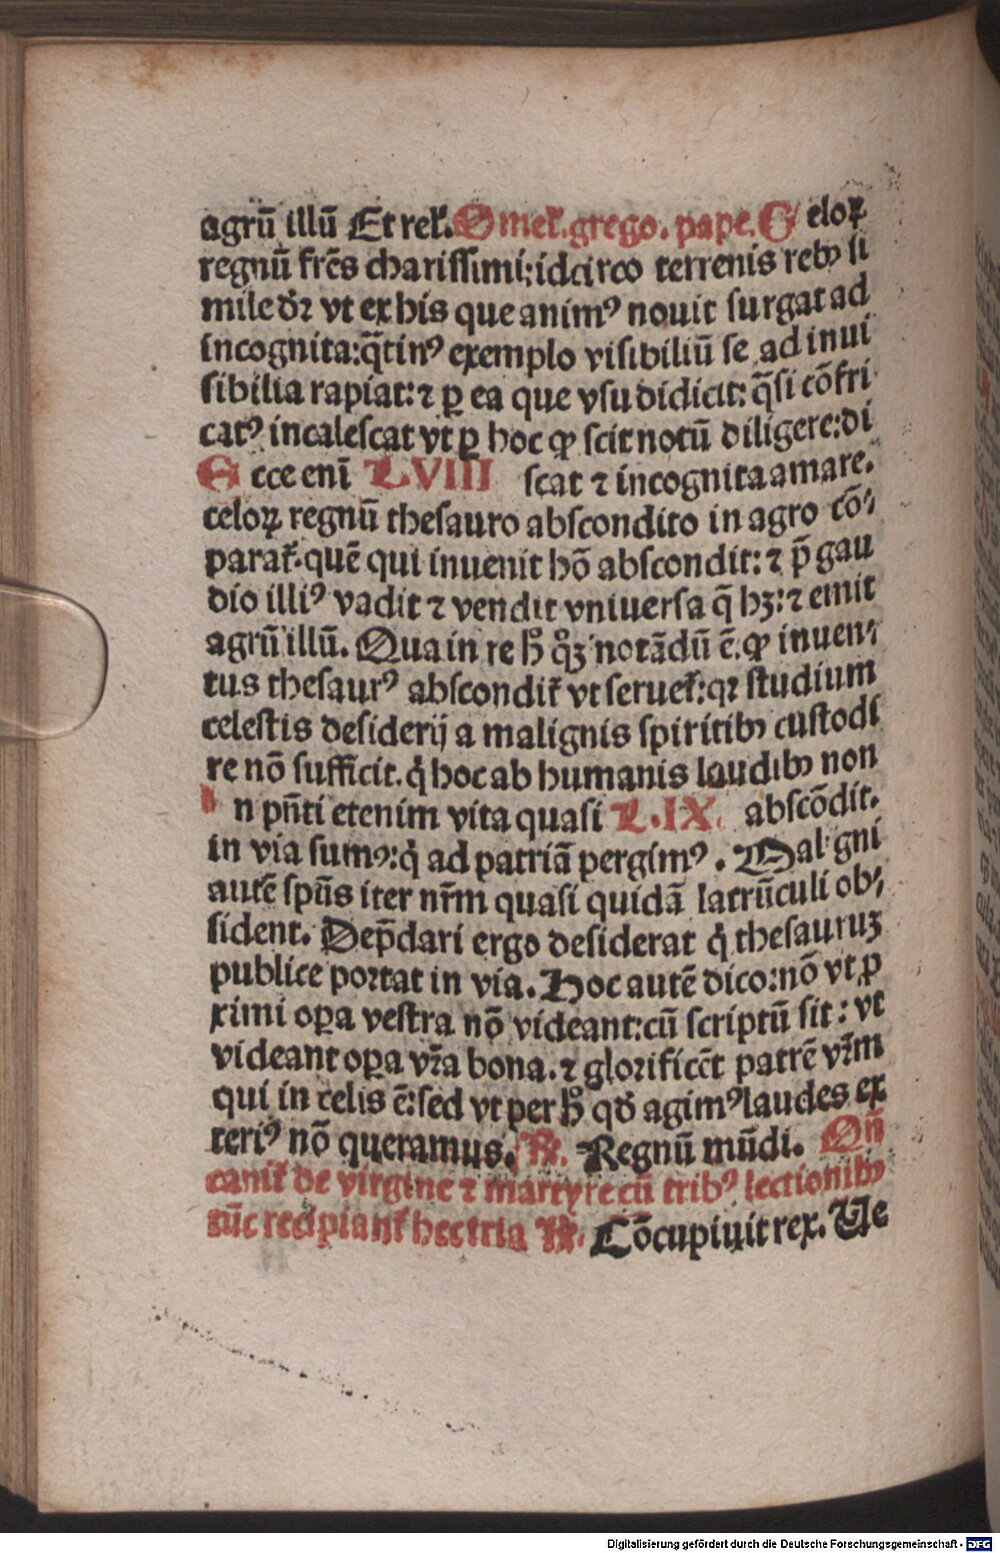 agrū illū Et relꝭ. Omelꝭ. grego. pape. C eloꝝ
regnū frēs charissimi: idcirco terrenis rebꝰ si
mile dr̄ vt ex his que animꝰ nouit surgat ad
incognita: q̄tinꝰ exemplo visibiliū se ad inui
sibilia rapiat: ⁊ ꝑ ea que vsu didicit: q̄si cōfri
catꝰ incalescat vt ꝑ hoc ꝙ scit notū diligere: di
E cce enī LVIII scat ⁊ incognita amare.
celoꝝ regnū thesauro abscondito in agro cō-
parat᷑. quē qui inuenit hō abscondit: ⁊ p̄ gau
dio illiꝰ vadit ⁊ vendit vniuersa q̄ hꝫ: ⁊ emit
agrū illū. Qua in re h̊ qͦꝫ notādū ē. ꝙ inuen-
tus thesaurꝰ abscondit᷑ vt seruet᷑: qꝛ studium
celestis desiderij a malignis spiritibꝰ custodi
re nō sufficit. q̇ hoc ab humanis laudibꝰ non
I n pn̄ti etenim vita quasi L.IX. abscōdit.
in via sumꝰ: q̇ ad patriā pergimꝰ. Maligni
autē spūs iter nr̄m quasi quidā latrūculi ob-
sident. Dep̄dari ergo desiderat q̇ thesauruꝫ
publice portat in via. Hoc autē dico: nō vt ꝓ
ximi oꝑa vestra nō videant: cū scriptū sit: vt
videant oꝑa vr̄a bona. ⁊ glorificēt patrē vr̄m
qui in celis ē: sed vt per h̊ qd̄ agimꝰ laudes ex
teriꝰ nō queramus. ℟. Regnū mūdi. Qn̄
canit᷑ de virgine ⁊ martyre cū tribꝰ lectionibꝰ
tūc recipiant᷑ hec tria ℟. Cōcupiuit rex. Ue
Digitalisierung gefördert durch die Deutsche Forschungsgemeinschaft - DFG